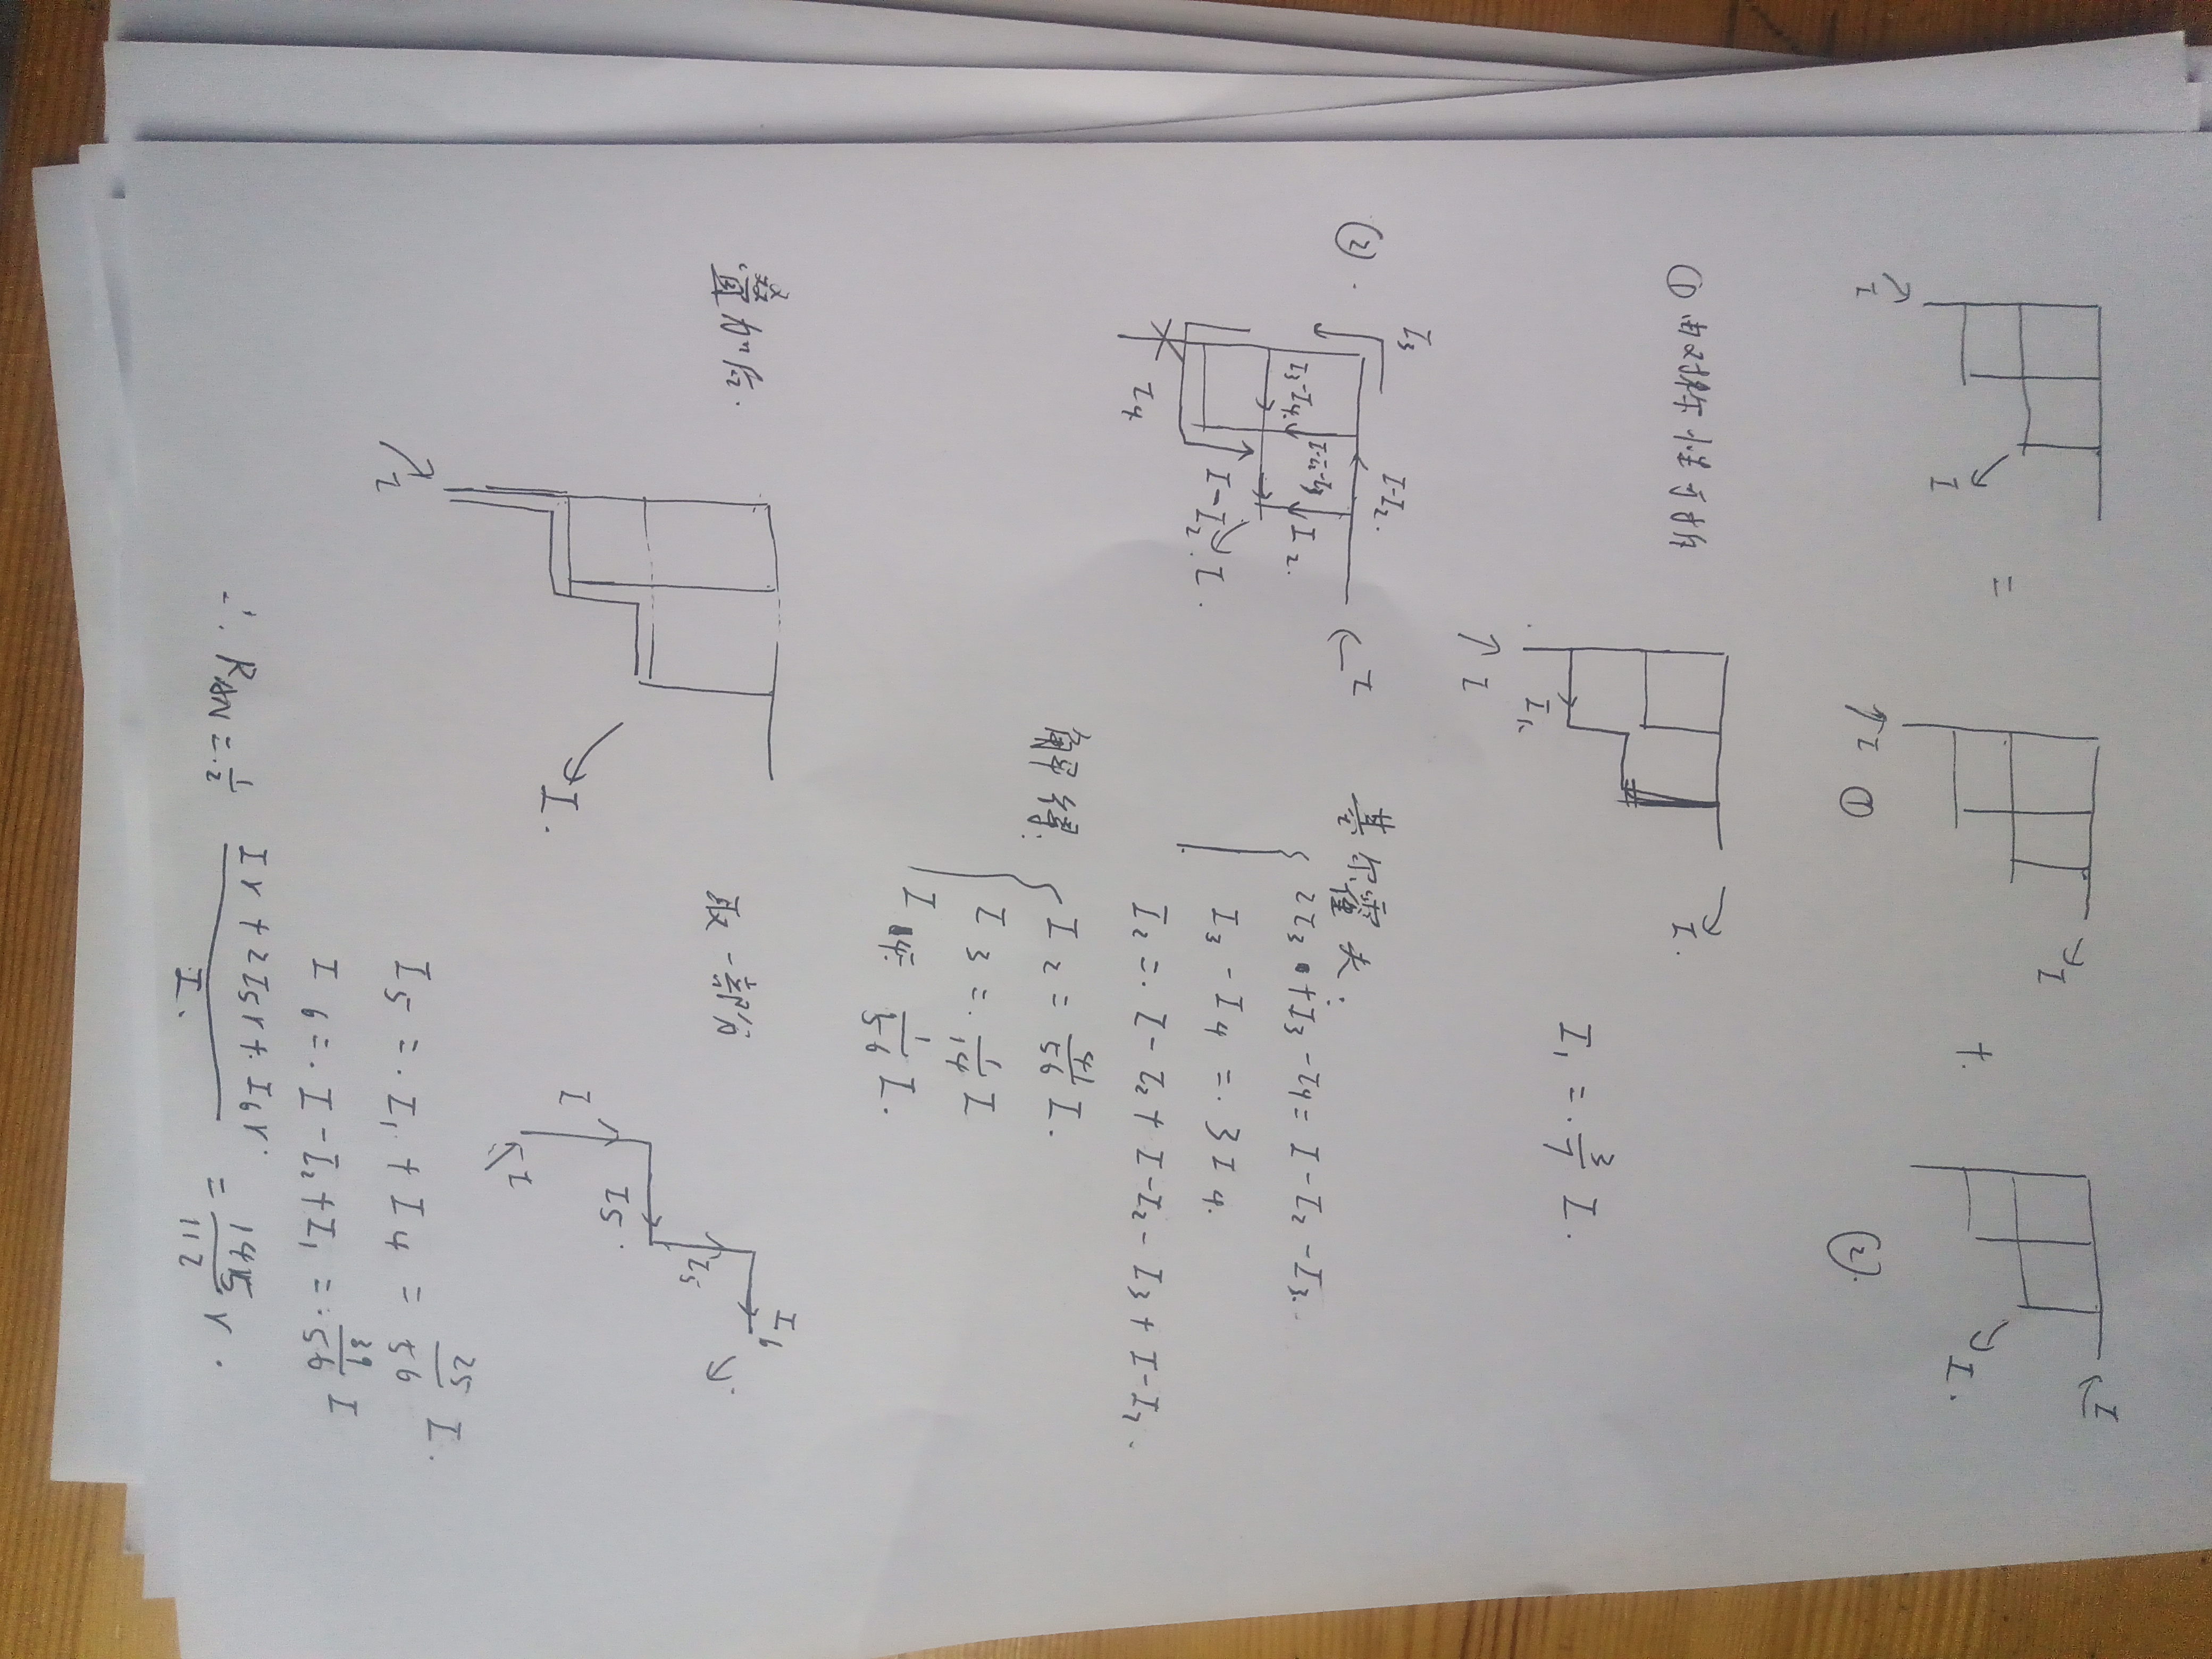 I
I
=
I
I
①
+
I
I
②
① 由对称性分析
I
I₁
I
I₁ = 3/7 I.
②.
I₃
I-I₂.
I₃-I₄
I-I₂-I₃
I₂.
I₄
I-I₂.
I.
I
基尔霍夫:
2I₃+I₃-I₄=I-I₂-I₃.
I₃-I₄=3I₄.
I₂=I-I₂+I-I₂-I₃+I-I₂.
解得:
I₂=41/56 I.
I₃=1/14 I
I₄=1/56 I.
叠加后.
I
I.
取一部分
I
I
I₅.
I₅
I₆
I₅=I₁+I₄=25/56 I.
I₆=I-I₂+I₁=39/56 I
∴ R_MN=1/2 (Ir+2I₅r+I₆r)/I.=145/112 r.